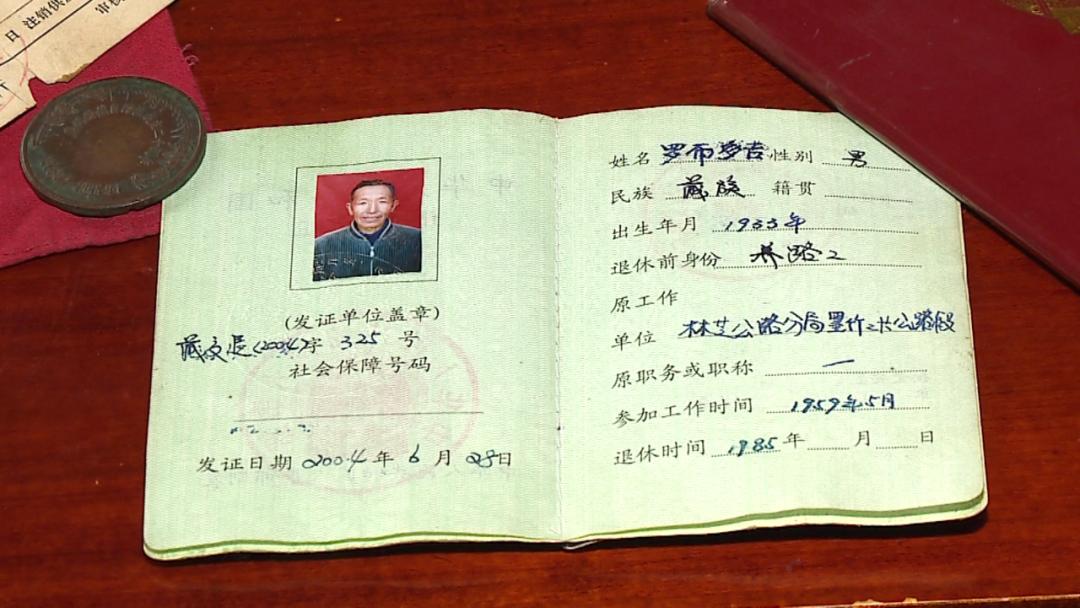 日 注销供
审核
(发证单位盖章)
藏交退(2004)字 325 号
社会保障号码
发证日期 2004 年 6 月 28 日
姓名 罗布多吉 性别 男
民族 藏族 籍贯
出生年月 1933年
退休前身份 养路工
原工作
单位 林芝公路分局墨竹工卡公路段
原职务或职称 一
参加工作时间 1959年5月
退休时间 1985 年 月 日